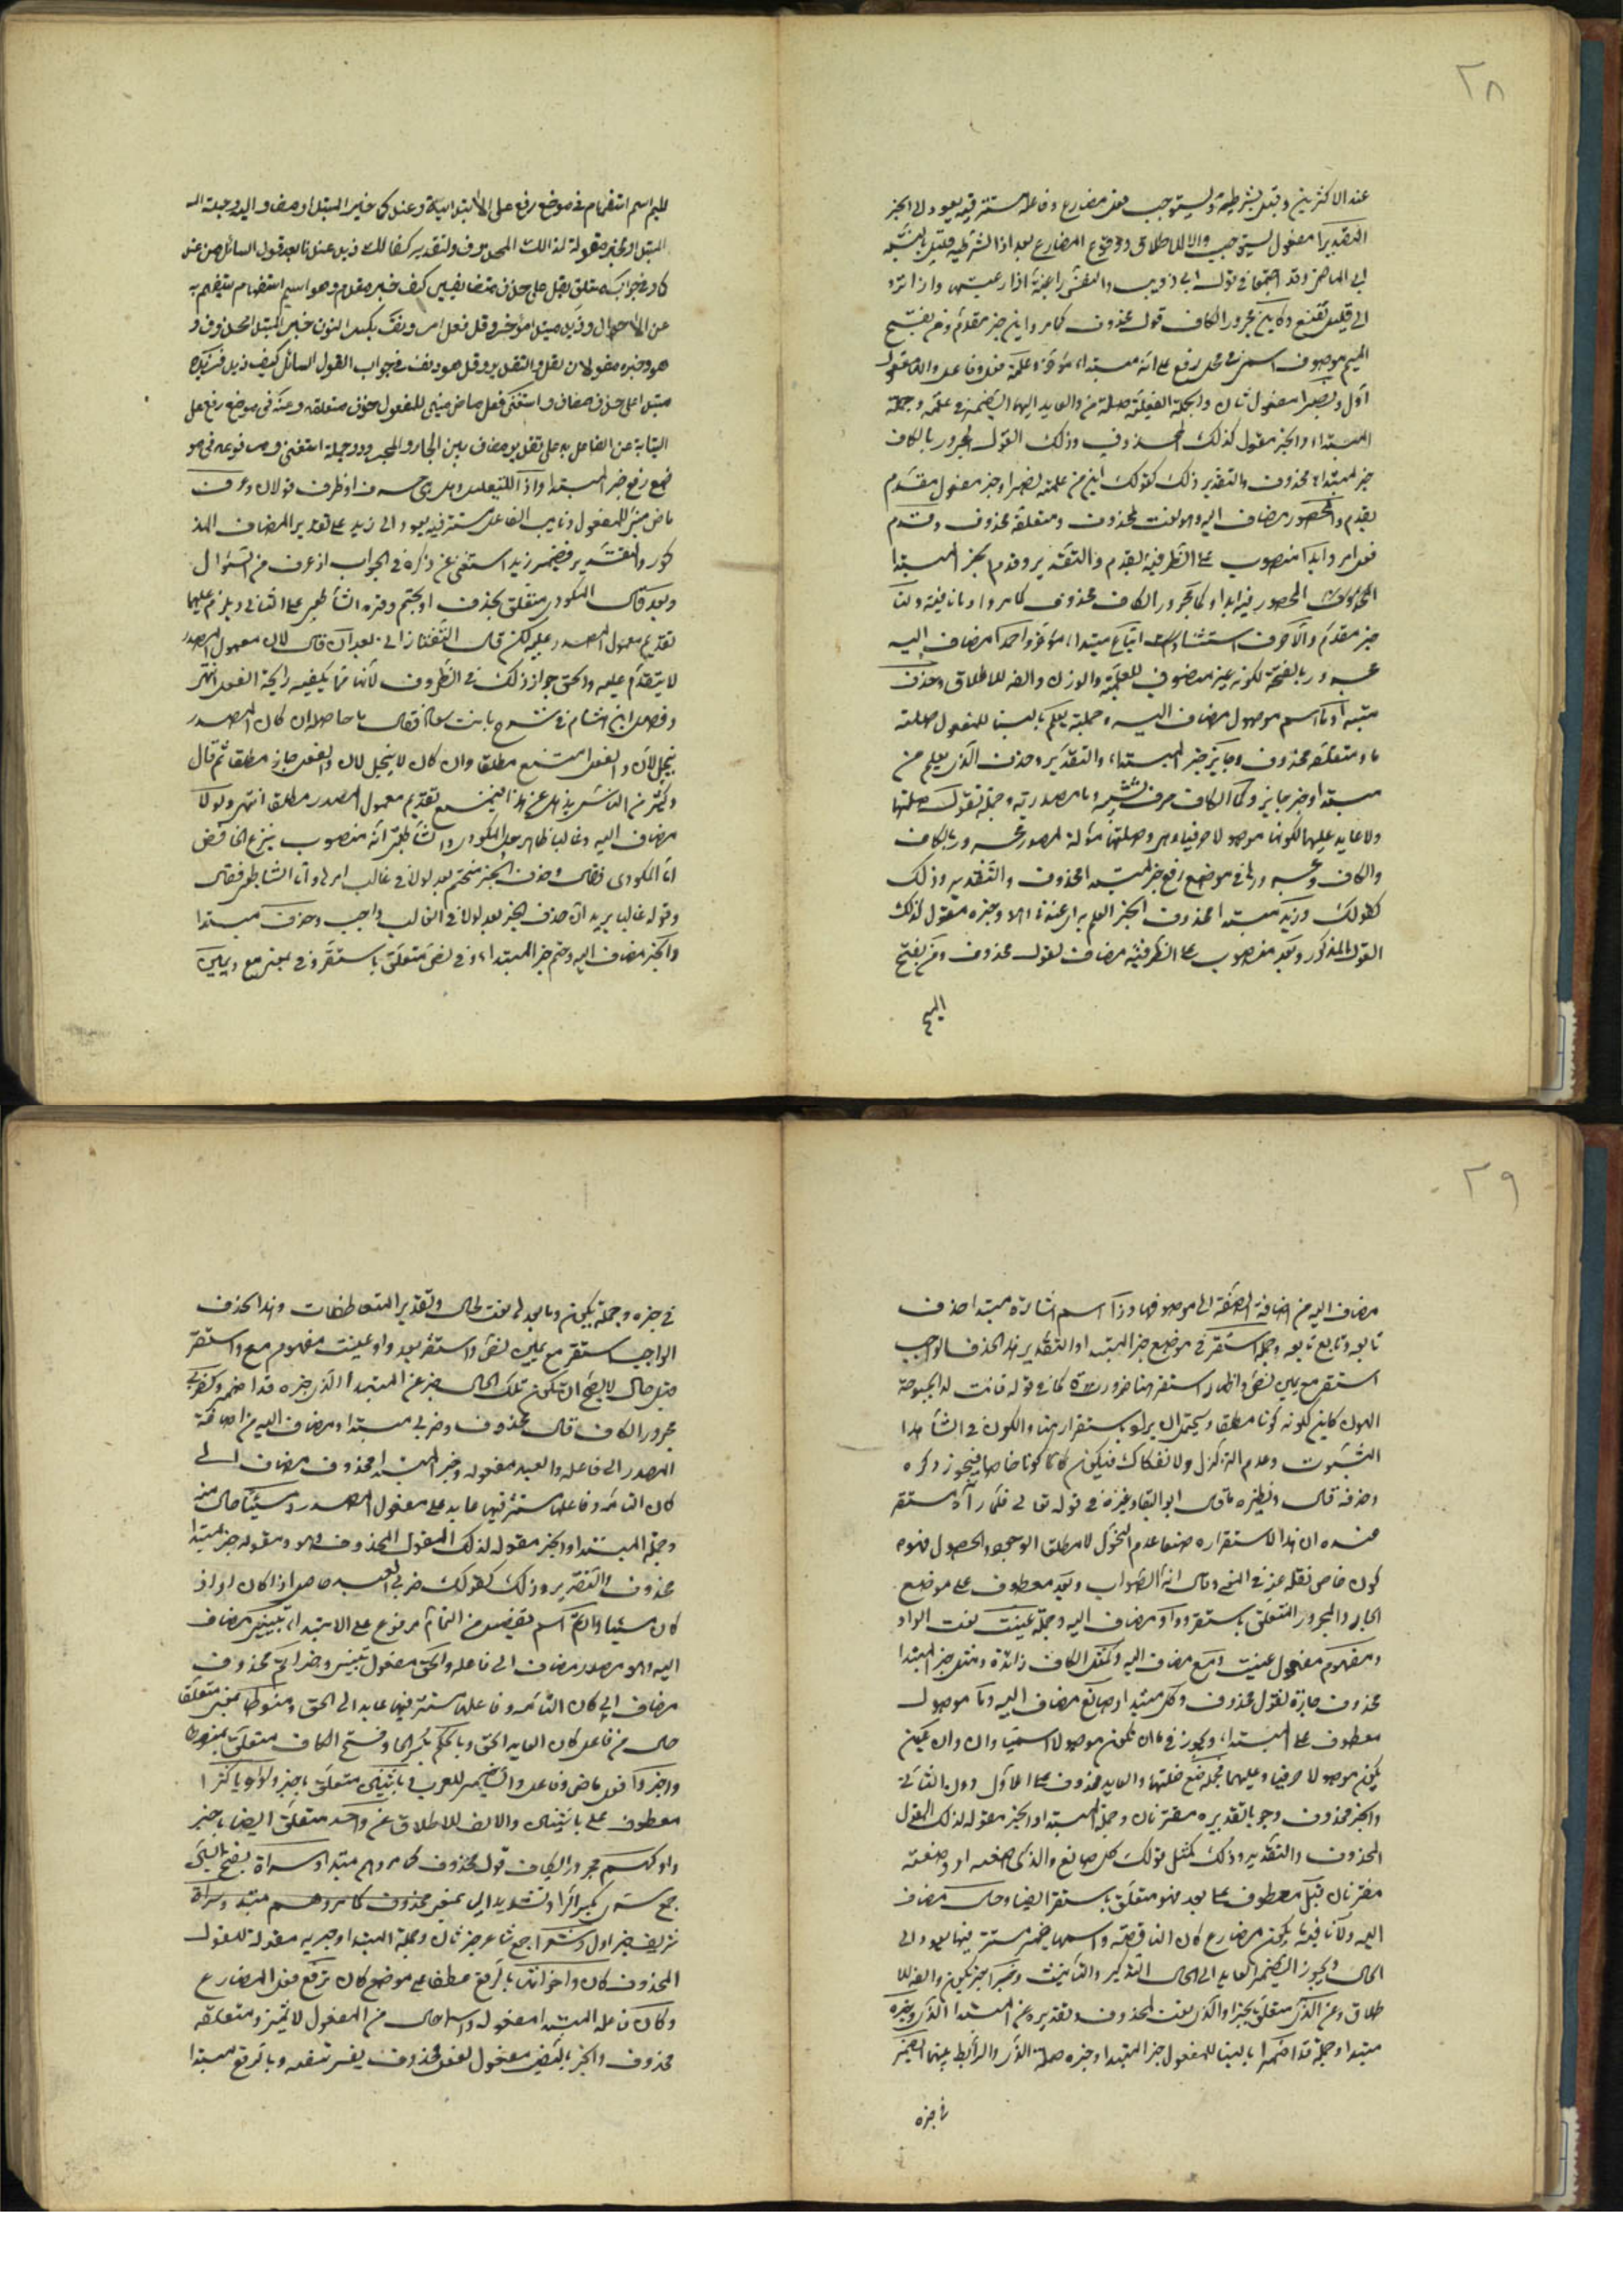 ٢٨
عند الاكثرين وقيل بشرطية ويستوجب فعل مضارع وفاعله مستتر فيه يعود الى الخبر
التقدير مفعول يستوجب والالف للاطلاق ووقوع المضارع بعد اذا الشرطية قليل بالنسبة
الى الماضى وقد اجتمعا فى قول ابى ذويب والنفس راغبة اذا رغبتها واذا ترد
الى قليل تقنع وكاين مجرور الكاف قول محذوف كما مر واين خبر مقدم ومن بفتح
الميم موصول اسمى فى محل رفع على انه مبتداء مؤخر وعلمته فعل وفاعل والهاء مفعول
اول ونصيرا مفعول ثان والجملة الفعلية صلة من والعايد اليها الضمير فى علمته وجملة
المبتداء والخبر مقول لذلك المحذوف وذلك القول المجرور بالكاف
خبر لمبتداء محذوف والتقدير وذلك كقولك اين من علمته نصيرا وخبر مفعول مقدم
بقدم والمحصور مضاف اليه وهو نعت لمحذوف ومتعلقه محذوف وقدم
فعل امر وابدا منصوب على الظرفية بقدم والتقدير وقدم خبر المبتدا
المحصور فيه ابدا وكما مجرور الكاف محذوف كما مر وما نافية ولنا
خبر مقدم والا حرف استثناء اتباع مبتداء مؤخر واحمدا مضاف اليه
مجرور بالفتحة لكونه غير منصرف للعلمية والوزن والفه للاطلاق وحذف
مبتدا وما اسم موصول مضاف اليه وجملة يعلم بالبنا للمفعول صلته
ما ومتعلقه محذوف وجايز خبر المبتداء والتقدير وحذف الذى يعلم من
مبتدا وخبر جايز وكما الكاف حرف تشبيه وما مصدرية وجملة تقول صلتها
ولا عايد عليها لكونها موصولا حرفيا وهى وصلتها مؤلة لمصدر مجرور بالكاف
والكاف ومجرورها فى موضع رفع خبر لمبتدا محذوف والتقدير وذلك
كقولك وزيد مبتدا محذوف الخبر للعلم به اى عندنا وخبره مقول لذلك
القول المذكور وبعد منصوب على الظرفية مضاف لقول محذوف ومن بفتح
الميم
للميم اسم استفهام فى موضع رفع على الابتدائية وعندكما خبر المبتدا ومضاف اليه وجملة
المبتدا والخبر مقولة لذلك المحذوف والتقدير كقولك زيد عندنا بعد قول السائل من عند
كما وفى جواب متعلق بقل على حذف مضاف كيف خبر مقدم وهو اسم استفهام يستفهم به
عن الاحوال وزيد مبتدا مؤخر وقل فعل امر ودنف بكسر النون خبر المبتدا محذوف
هو وخبره مقولان لقل والتقدير وقل هو دنف فى جواب القول السائل كيف زيد فزيد
مبتدا على حذف مضاف واستغنى فعل ماض مبنى للمفعول حذف متعلقه وعنه فى موضع رفع على
النيابة عن الفاعل به على تقدير مضاف بين الجار والمجرور وجملة استغنى ومرفوعه فى مو
ضع رفع خبر المبتدا واذ للتعليل وهل هى حرف او ظرف قولان وعرف
ماض مبنى للمفعول ونايب الفاعل مستتر فيه يعود الى زيد على تقدير المضاف المذ
كور والتقدير فضمير زيد استغنى عن ذكره فى الجواب اذ عرف من السؤال
وبعد قال المكودى متعلق بحذف او بحتم ورده الشاطبى على الثانى ويلزم عليها
تقديم معمول المصدر عليه لكن قال التفتازانى بعد ان قال لان معمول المصدر
لا يتقدم عليه والحق جواز ذلك فى الظروف لانها مما يكفيه رايحة الفعل انتهى
وفصل ابن هشام فى شرح بانت سعاد فقال ما حاصله ان كان المصدر
ينحل لان والفعل امتنع مطلقا وان كان لا ينحل لان والفعل جاز مطلقا ثم قال
وكثير من الناس يذهل عن هذا فيمنع تقديم معمول المصدر مطلقا انتهى ولولا
مضاف اليه وغالبا ظاهر حل المكودى والشاطبى انه منصوب بنزع الخافض
اما المكودى فقال وحذف الخبر منحتم بعد لولا فى غالب امرها واما الشاطبى فقال
وقوله غالبا يريد ان حذف الخبر بعد لولا فى الغالب واجب وحذف مبتدا
والخبر مضاف اليه وحتم خبر المبتداء وفى نص متعلق باستقر وفى بمعنى مع ويمين
٢٩
مضاف اليه من اضافة الصفة الى موصوفها وذا اسم اشارة مبتدا حذف
تابعه وتابع تابعه وجملة استقر فى موضع خبر المبتدا والتقدير هذا الحذف الواجب
استقر مع يمين نص واظهار استقر هنا ضرورة كما فى قوله فانت لدا بحبوحة
الهون كاين لكونه كونا مطلقا ويحتمل ان يراد باستقرار هنا والكون فى الشاهد
الثبوت وعدم التزلزل والانفكاك فيكون كل كونا خاصا فيجوز ذكره
وحذفه قال ونظيره ما قال ابو البقا وغيره فى قوله تعالى فلما رآه مستقرا
عنده ان هذا الاستقرار معناه عدم التحول لا مطلق الوجود والحصول فهو
كون خاص نقله عنه فى المغنى وقال انه الصواب وبعد معطوف على موضع
الجار والمجرور المتعلق باستقر وواو مضاف اليه وجملة عينت نعت الواو
ومفهوم مفعول عينت ومع مضاف اليه وكمثل الكاف زائدة ومثل خبر لمبتدا
محذوف جازة لقول محذوف وكل مبتدا وصانع مضاف اليه وما موصول
معطوف على المبتداء ويجوز فى ما ان تكون موصولا اسميا وان
يكون موصولا حرفيا وعليهما فجملة صنع صلتها والعايد محذوف على الاول دون الثانى
والخبر محذوف وجوبا تقديره مقترنان وجملة المبتدا والخبر مقولة لذلك القول
المحذوف والتقدير وذلك كمثل قولك كل صانع والذى صنعه او وصنعته
مقترنان وقبل معطوف على بعد فهو متعلق باستقر ايضا وحال مضاف
اليه ولا نافية ويكون مضارع كان الناقصة واسمها ضمير مستتر فيها يعود الى
الحال ويجوز فى الضمير العايد الى الحال التذكير والتانيث وخبرا خبر يكون والفه للا
طلاق وعن الذى متعلق بخبرا والذى نعت لمحذوف وتقديره عن المبتدا الذى وخبره
مبتدا وجملة قد اضمرا بالبنا للمفعول خبر المبتدا وخبره صلة الذى والرابط بينهما الضمير
فى خبره
فى خبره وجملة يكون وما بعدها نعت لحال وتقدير المتعاطفات وهذا الحذف
الواجب استقر مع يمين نص واستقر بعد واو عينت مفهوم مع واستقر
قبل حال لا يصح ان تكون تلك الحال خبر عن المبتدا الذى خبره قد اضمر وكضربى
مجرور الكاف قال محذوف وضربى مبتدا ومضاف اليه من اضافة
المصدر الى فاعله والعبد مفعوله وخبر المبتدا محذوف مضاف الى
كان التامة وفاعلها مستتر فيها عايد على مفعول المصدر ومسيئا حال منه
وجملة المبتدا والخبر مقولة لذلك المقول المحذوف وهو ومقوله خبر لمبتدا
محذوف والتقدير وذلك كقولك ضربى العبد حاصل اذا كان او اذ
كان مسيئا واتم اسم تفضيل من التمام مرفوع على الابتداء تبيينى مضاف
اليه وهو مصدر مضاف الى فاعله والحق مفعول تبيينى وخبر اتم محذوف
مضاف الى كان التامة وفاعلها مستتر فيها عايد الى الحق ومنوطا بمعنى متعلقا
حال من فاعل كان العايد الحق وبالحكم بكسر الحا وفتح الكاف متعلق بمنوطا
واخبروا فعل ماض وفاعل والضمير للعرب وباثنين متعلق باخبروا او باكثرا
معطوف على باثنين والالف للاطلاق عن واحد متعلق ايضا باخبر
وا وكهم مجرور الكاف قول محذوف كما مر وهم مبتدا وسراة بفتح السين
جمع سرى بكسر الرا وتشديد اليا بمعنى محذوف كما مر وهم مبتدا وسراة
شريف خبر اول وشعرا جمع شاعر خبر ثان وجملة المبتدا وخبريه مقولة للقول
المحذوف كان واخواتها بالرفع عطفا على موضع كان ترفع فعل مضارع
وكان فاعله المبتدا مفعوله واسما حال من المفعول لا تمييز ومتعلقه
محذوف والخبر بالنصب مفعول لفعل محذوف يفسره تنصبه وبالرفع مبتدا